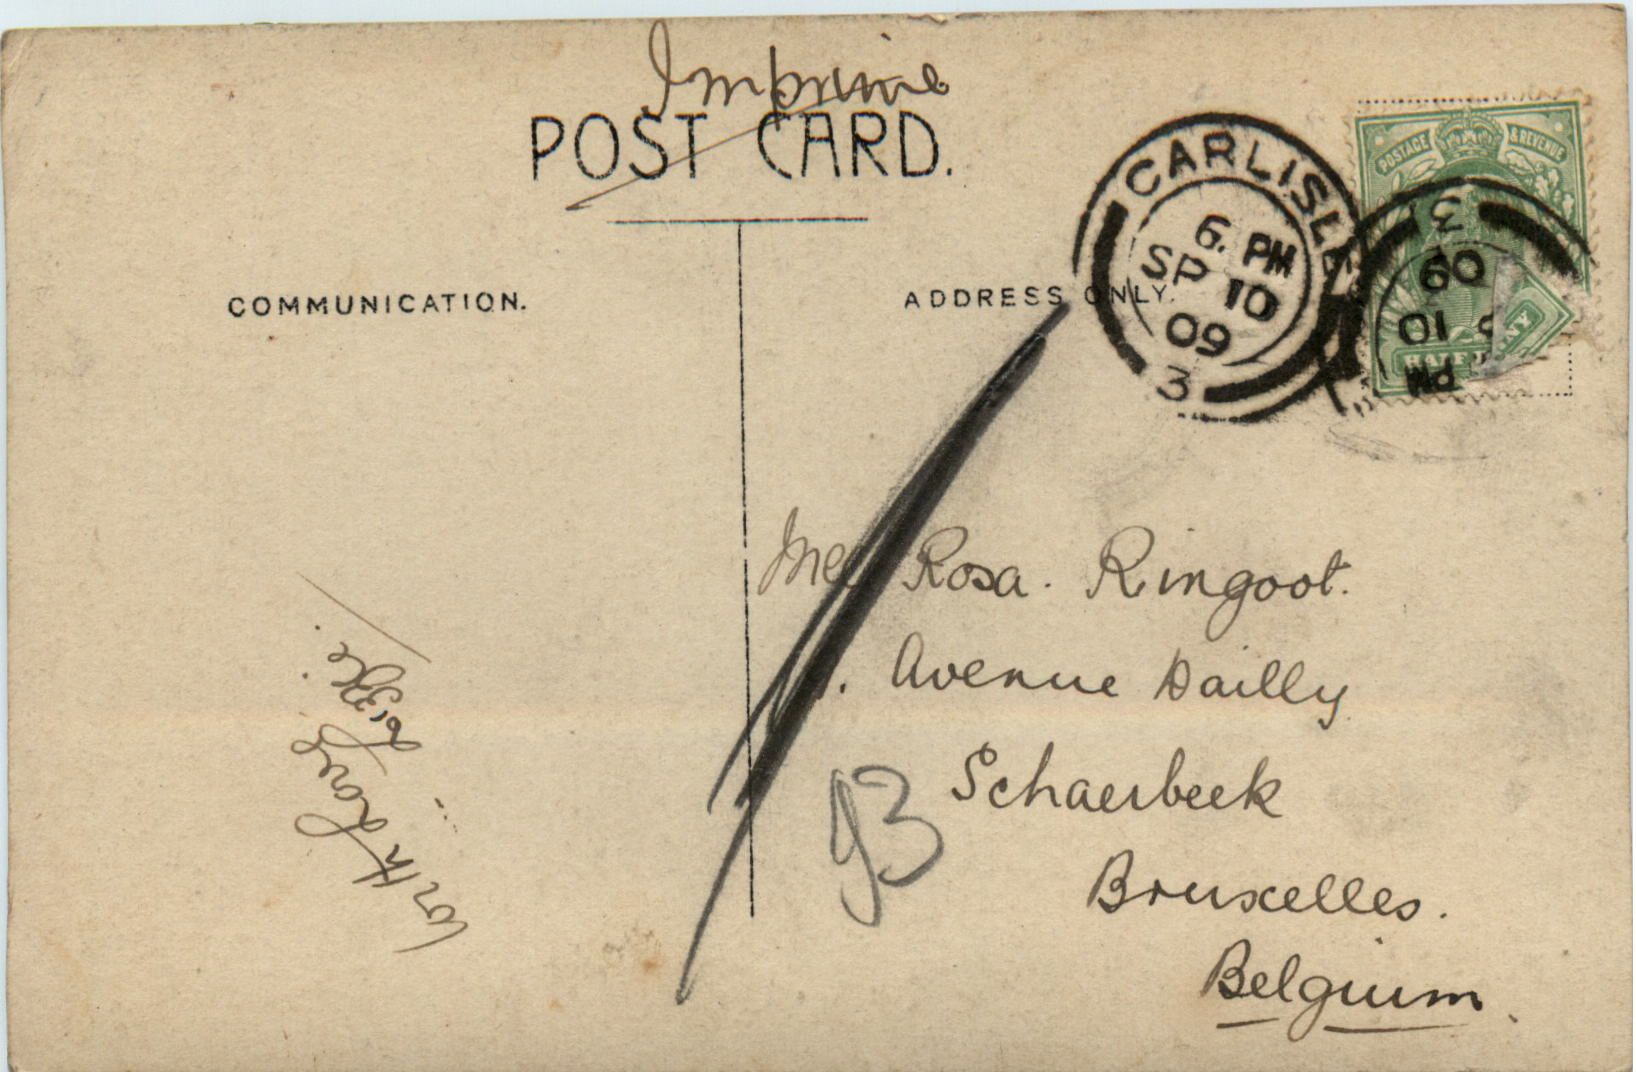 Imprimé
POST CARD.
COMMUNICATION.
ADDRESS ONLY.
CARLISLE
6. PM
SP 10
09
3
POSTAGE & REVENUE
3
09
10
PM
Rosa. Ringoot.
Avenue Dailly
Schaerbeek
Bruxelles.
Belgium
93
With Love
Lizzie.